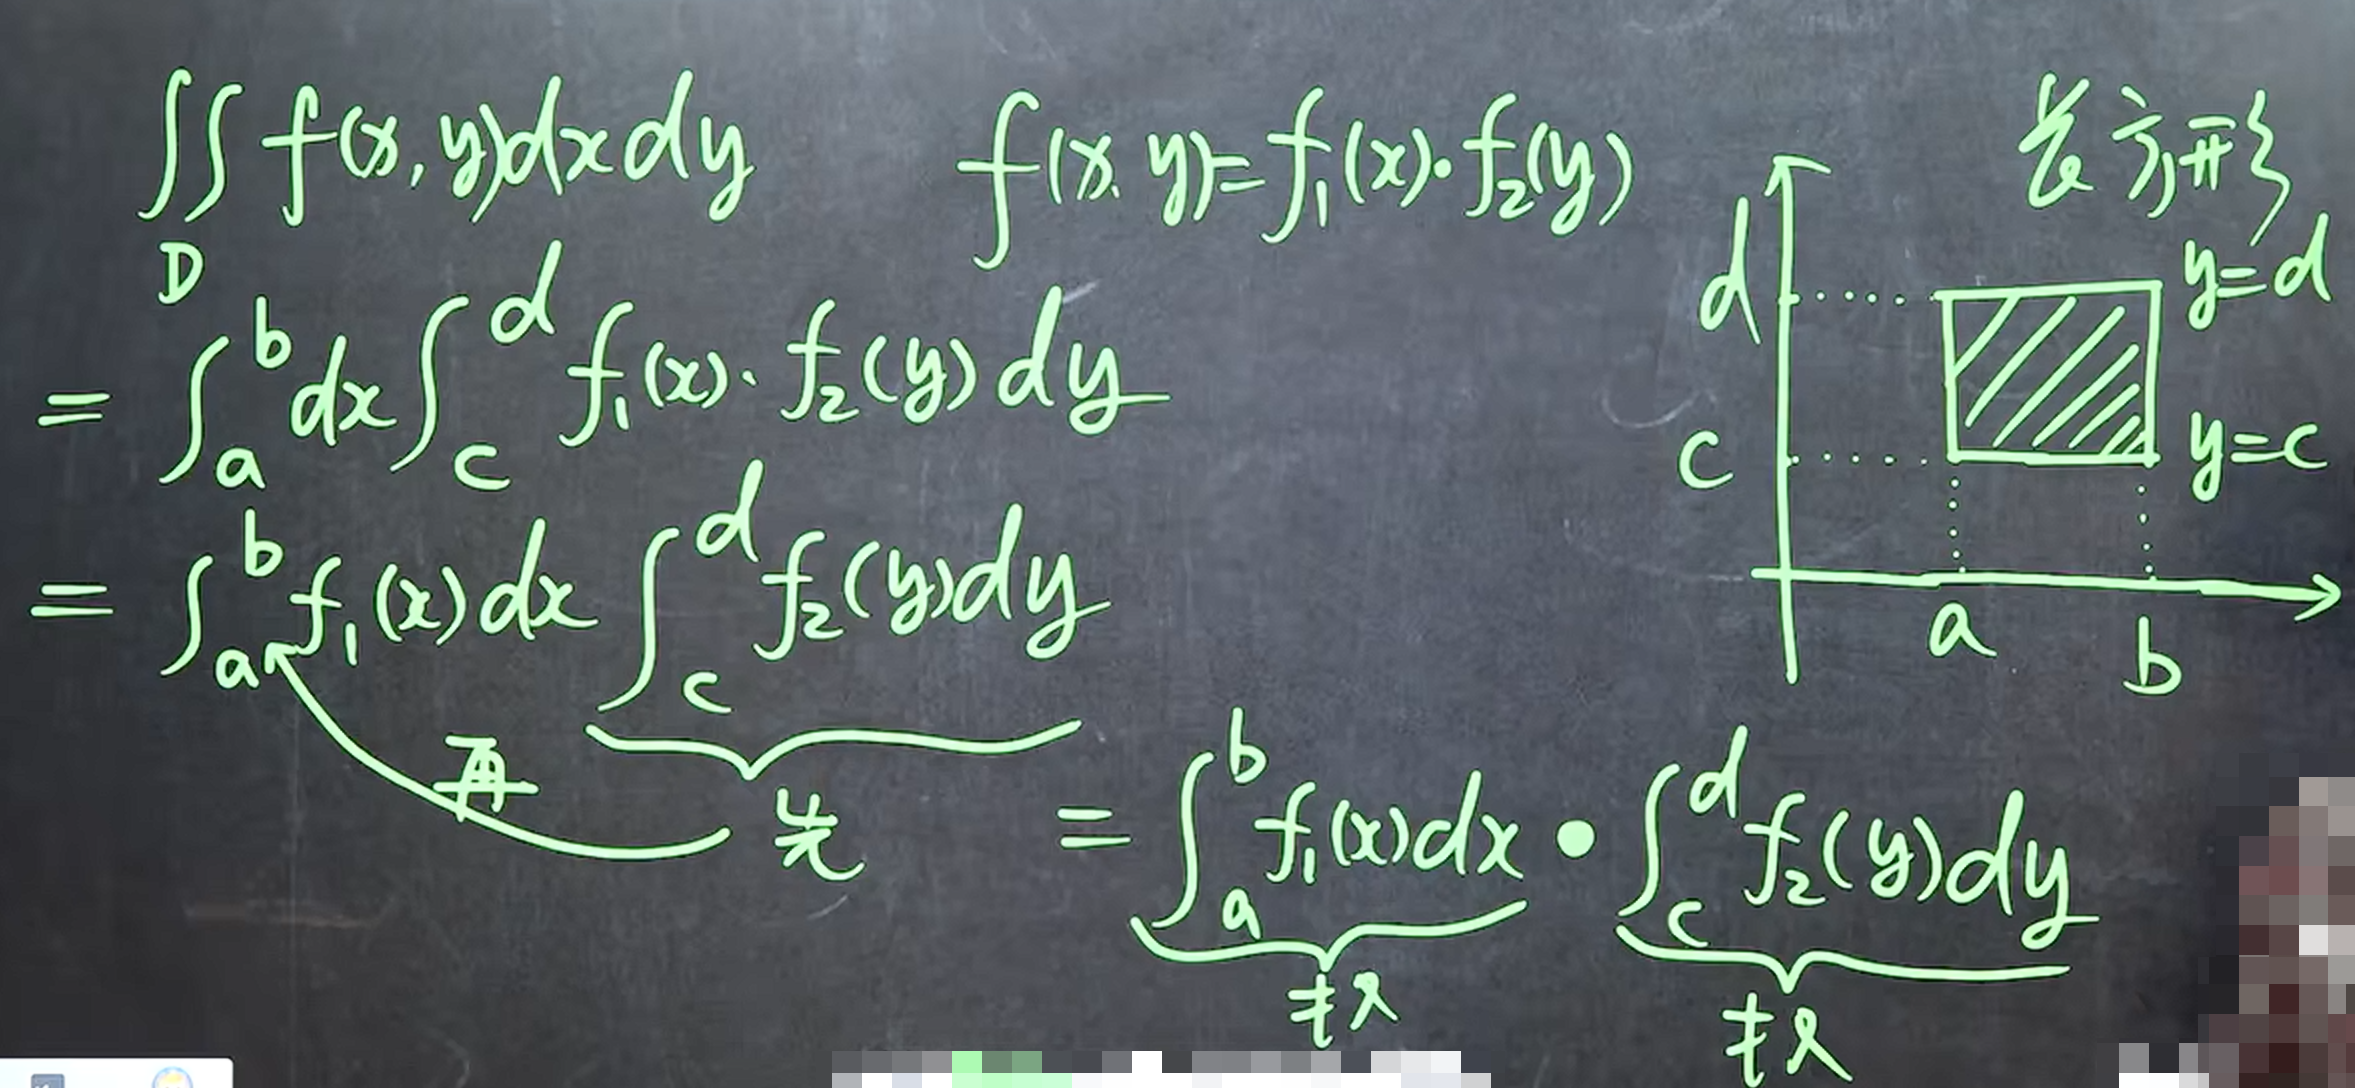 ∬_D f(x,y)dxdy
f(x,y)=f₁(x)·f₂(y)
长方形
= ∫_a^b dx ∫_c^d f₁(x)·f₂(y)dy
= ∫_a^b f₁(x)dx ∫_c^d f₂(y)dy
再
先
= ∫_a^b f₁(x)dx • ∫_c^d f₂(y)dy
d
y=d
c
y=c
a
b